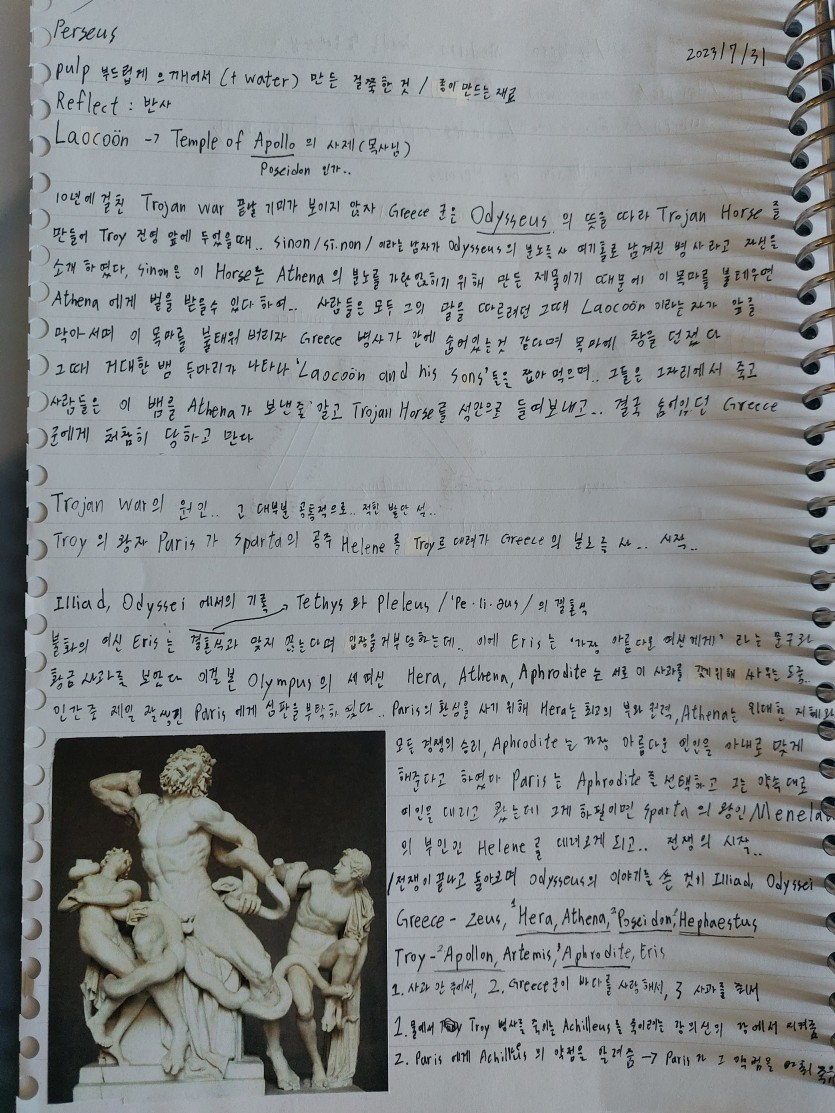 Perseus
2023/7/31
pulp 부드럽게 으깨어서 (+ water) 만든 걸쭉한 것 / 종이 만드는 재료
Reflect : 반사
Laocoön → Temple of Apollo 의 사제(목사님)
Poseidon 인가..
10년에 걸친 Trojan war 끝날 기미가 보이지 않자 Greece 군은 Odysseus 의 뜻을 따라 Trojan Horse 를
만들어 Troy 진영 앞에 두었을때.. sinon /si.non / 이라는 남자가 Odysseus의 분노를 사 여기홀로 남겨진 병사라고 자신을
소개 하였다, sinon은 이 Horse는 Athena 의 분노를 가라앉히기 위해 만든 제물이기 때문에 이 목마를 불태우면
Athena 에게 벌을 받을수 있다 하여.. 사람들은 모두 그의 말을 따르려던 그때 Laocoön 이라는자가 앞을
막아서며 이 목마를 불태워 버리자 Greece 병사가 안에 숨어있는것 같다며 목마에 창을 던졌다
그때 거대한 뱀 두마리가 나타나 'Laocoön and his sons'들을 잡아 먹으며.. 그들은 그자리에서 죽고
사람들은 이 뱀을 Athena가 보낸줄 알고 Trojan Horse를 성안으로 들여보내고.. 결국 숨어있던 Greece
군에게 처참히 당하고 만다
Trojan war의 원인.. 그 대부분 공통적으로.. 적힌 발단 설..
Troy 의 왕자 Paris 가 Sparta의 공주 Helene 를 Troy로 데려가 Greece의 분노를 사.. 시작..
Illiad, Odyssei 에서의 기록 Tethys 와 Pleleus /'Pe·li·əus / 의 결혼식
불화의 여신 Eris는 결혼식과 맞지 않는다며 입장을거부당하는데.. 이에 Eris는 '가장 아름다운 여신에게' 라는 문구와
황금 사과를 보낸다 이걸 본 Olympus의 세여신 Hera, Athena, Aphrodite 는 서로 이 사과를 갖기위해 싸우는 도중
인간중 제일 잘생긴 Paris 에게 심판을부탁하 였다.. Paris의 환심을 사기 위해 Hera는 최고의 부와 권력, Athena는 위대한 지혜와
모든 경쟁의 승리, Aphrodite 는 가장 아름다운 인인을 아내로 맞게
해준다고 하였다 Paris는 Aphrodite 를 선택하고 그는 약속 대로
여인을 데리고 왔는데 그게 하필이면 Sparta 의 왕인 Menela
의 부인인 Helene 를 데려오게 되고.. 전쟁의 시작..
/전쟁이 끝나고 돌아오며 Odysseus의 이야기를 쓴 것이 Illiad, Odyssei
Greece - Zeus, ¹Hera, Athena, ²Poseidon, Hephaestus
Troy - ²Apollon, Artemis, ³Aphrodite, Eris
1. 사과 안 주어서, 2. Greece군이 바다를 사랑해서, 3 사과를 줘서
1. 물에서 Troy 병사를 죽이는 Achilleus를 죽이려는 강의신의 강에서 지켜줌
2. Paris 에게 Achilles 의 약점을 알려줌 → Paris가 그 약점을